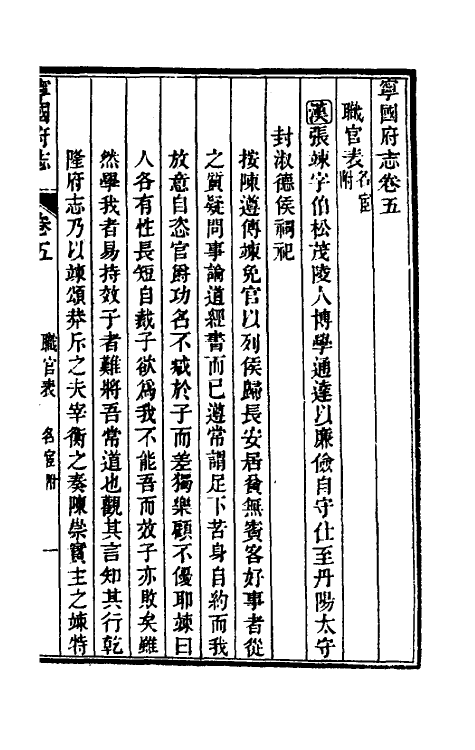 寧國府志卷五
職官表名宦附
漢張竦字伯松茂陵人博學通達以廉儉自守仕至丹陽太守
封淑德侯祠祀
按陳遵傳竦免官以列侯歸長安居貧無賓客好事者從
之質疑問事論道經書而已遵常謂足下苦身自約而我
放意自恣官爵功名不減於子而差獨樂顧不優耶竦曰
人各有性長短自裁子欲為我不能吾而效子亦敗矣雖
然學我者易持效子者難將吾常道也觀其言知其行乾
隆府志乃以竦頌莽斥之夫宰衡之奏陳崇實主之竦特
寧國府志
卷五
職官表 名宦附
一